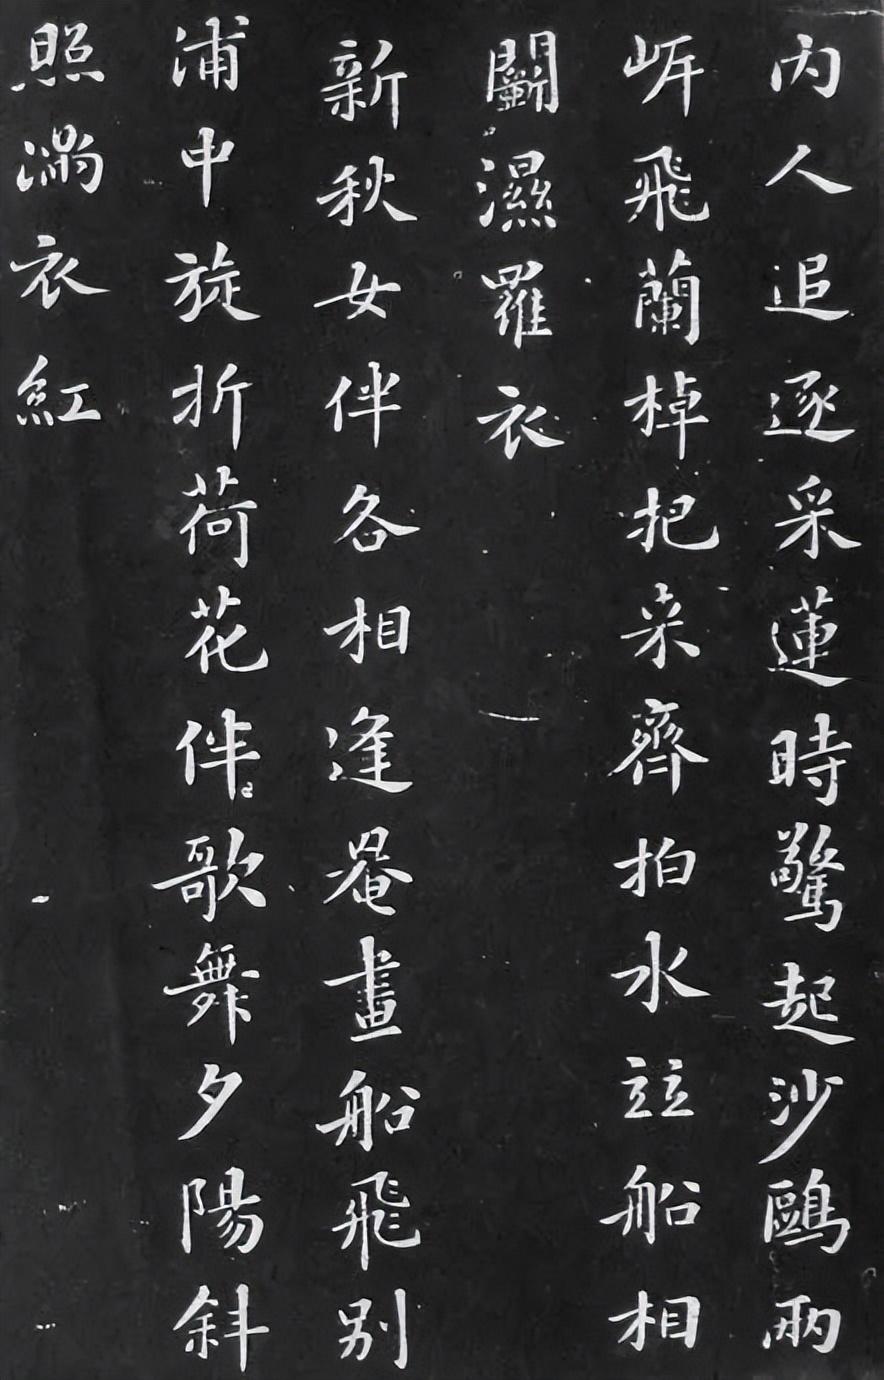 內人追逐采蓮時驚起沙鷗兩
岸飛蘭棹把来齊拍水竝船相
鬭濕羅衣
新秋女伴各相逢罨畫船飛别
浦中旋折荷花伴歌舞夕陽斜
照滿衣紅